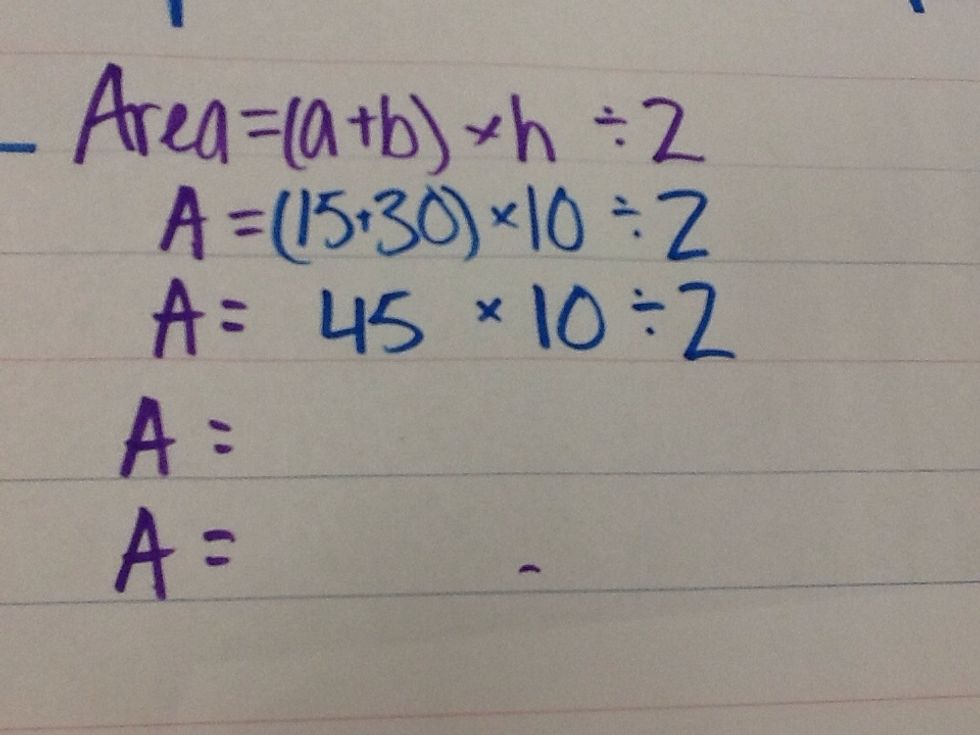 Area=(a+b)×h ÷2
A =(15+30)×10 ÷2
A = 45 × 10 ÷2
A =
A = -